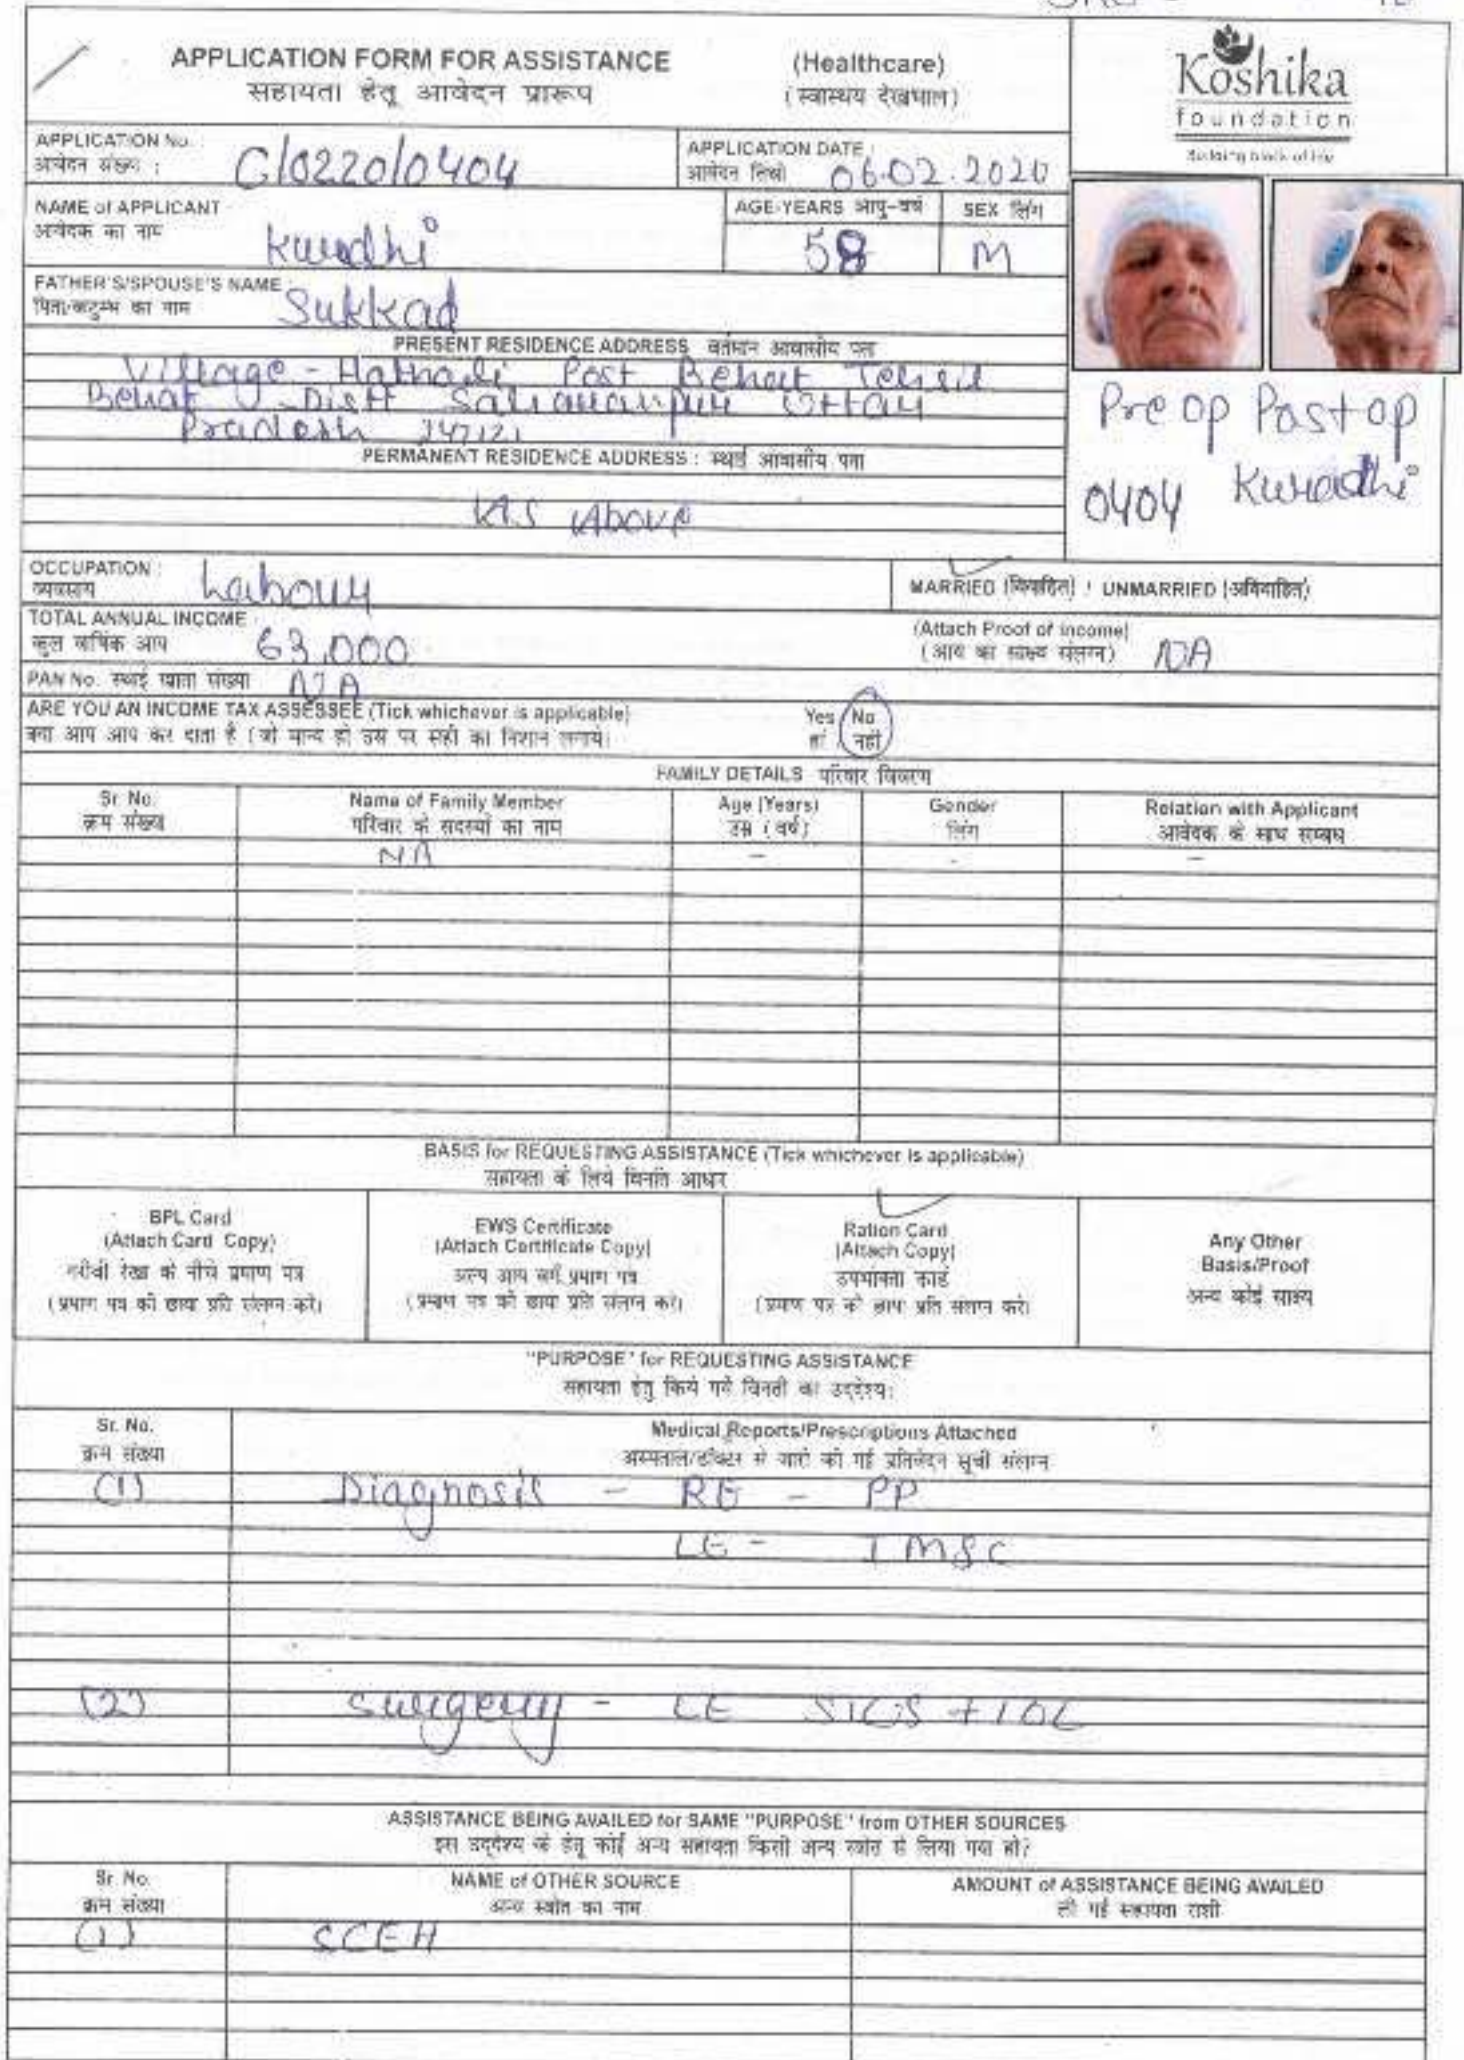 APPLICATION FORM FOR ASSISTANCE (Healthcare)
सहायता हेतू आवेदन प्रारूप (स्वास्थय देखभाल)
Koshika
foundation
APPLICATION No. : C/0220/0404
आवेदन संख्या :
APPLICATION DATE : 06.02.2020
आवेदन तिथी
NAME of APPLICANT
आवेदक का नाम
AGE-YEARS आयु-वर्ष 58
SEX लिंग M
FATHER'S/SPOUSE'S NAME : Sukkad
PRESENT RESIDENCE ADDRESS वर्तमान आवासीय पता
Village - Post Behat Tehsil
Behat Distt Saharanpur Uttar
Pradesh 247121
PERMANENT RESIDENCE ADDRESS : स्थाई आवासीय पता
As Above
Pre op Post op
0404
OCCUPATION : Labour
व्यवसाय
MARRIED (विवाहित) / UNMARRIED (अविवाहित)
TOTAL ANNUAL INCOME 63,000
कुल वार्षिक आय
(Attach Proof of income) NA
(आय का साक्ष्य संलग्न)
PAN No. स्थाई खाता संख्या NA
ARE YOU AN INCOME TAX ASSESSEE (Tick whichever is applicable) Yes / No
क्या आप आय कर दाता है (जो मान्य हो उस पर सही का निशान लगाये) हां / नहीं
FAMILY DETAILS परिवार विवरण
Sr. No. Name of Family Member Age (Years) Gender Relation with Applicant
क्रम संख्या परिवार के सदस्यों का नाम उम्र (वर्ष) लिंग आवेदक के साथ सम्बंध
NA - - -
BASIS for REQUESTING ASSISTANCE (Tick whichever is applicable)
सहायता के लिये विनति आधार
BPL Card
(Attach Card Copy)
गरीबी रेखा के नीचे प्रमाण पत्र
(प्रमाण पत्र की छाया प्रति संलग्न करे)
EWS Certificate
(Attach Certificate Copy)
अल्प आय वर्ग प्रमाण पत्र
(प्रमाण पत्र की छाया प्रति संलग्न करे)
Ration Card
(Attach Copy)
उपभोक्ता कार्ड
(प्रमाण पत्र की छाया प्रति संलग्न करे)
Any Other
Basis/Proof
अन्य कोई साक्ष्य
"PURPOSE" for REQUESTING ASSISTANCE
सहायता हेतु किये गये विनती का उद्देश्य:
Sr. No. Medical Reports/Prescriptions Attached
क्रम संख्या अस्पताल/डॉक्टर से जारी की गई प्रतिवेदन सूची संलग्न
(1) Diagnosis - RE - PP
LE - IMSC
(2) Surgery - LE SICS + IOL
ASSISTANCE BEING AVAILED for SAME "PURPOSE" from OTHER SOURCES
इस उद्देश्य के हेतू कोई अन्य सहायता किसी अन्य स्त्रोत से लिया गया हो?
Sr. No. NAME of OTHER SOURCE AMOUNT of ASSISTANCE BEING AVAILED
क्रम संख्या अन्य स्त्रोत का नाम ली गई सहायता राशी
(1) SCEH